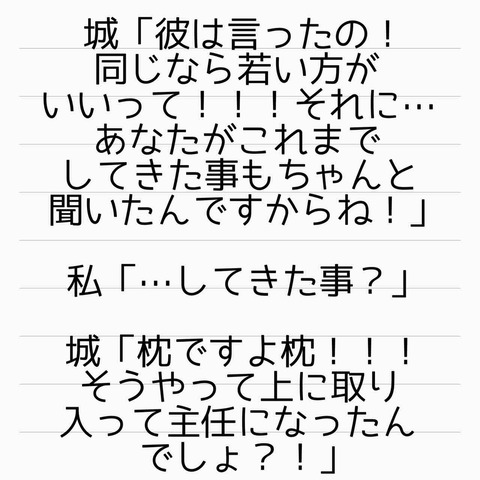 城「彼は言ったの！
同じなら若い方が
いいって！！！それに…
あなたがこれまで
してきた事もちゃんと
聞いたんですからね！」
私「…してきた事？」
城「枕ですよ枕！！！
そうやって上に取り
入って主任になったん
でしょ？！」